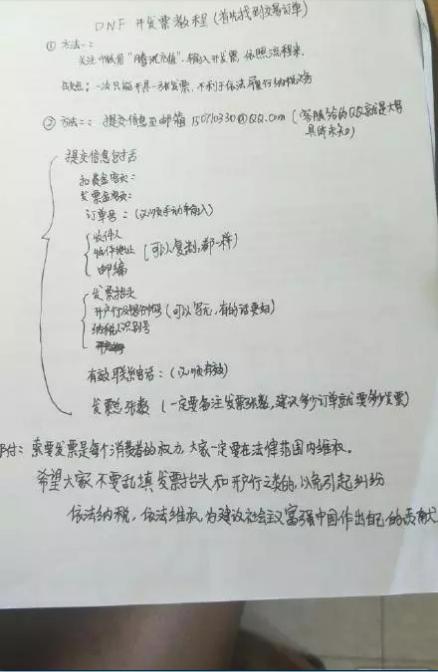 DNF 开发票教程(首先找到交易订单)
① 方法一:
关注 "腾讯充值",输入开发票,依照流程来.
缺点:一次只能开具一张发票,不利于依法履行纳税义务
② 方法二:提交信息至邮箱 15010330@QQ.com (客服给的QQ就是大号
具体未知)
提交信息包括
扣费金额:
发票金额:
订单号:(必须手动输入)
收件人
收件地址 (可以复制,都一样)
邮编
发票抬头
开户行及银行帐号(可以写无,有的话要填)
纳税人识别号
有效联系电话:(必须有效)
发票总张数 (一定要备注发票张数,建议多少订单就要多少发票)
附:索要发票是每个消费者的权力,大家一定要在法律范围内维权。
希望大家不要乱填发票抬头和开户行之类的,以免引起纠纷
依法纳税,依法维权,为建设社会主义富强中国作出自己的贡献